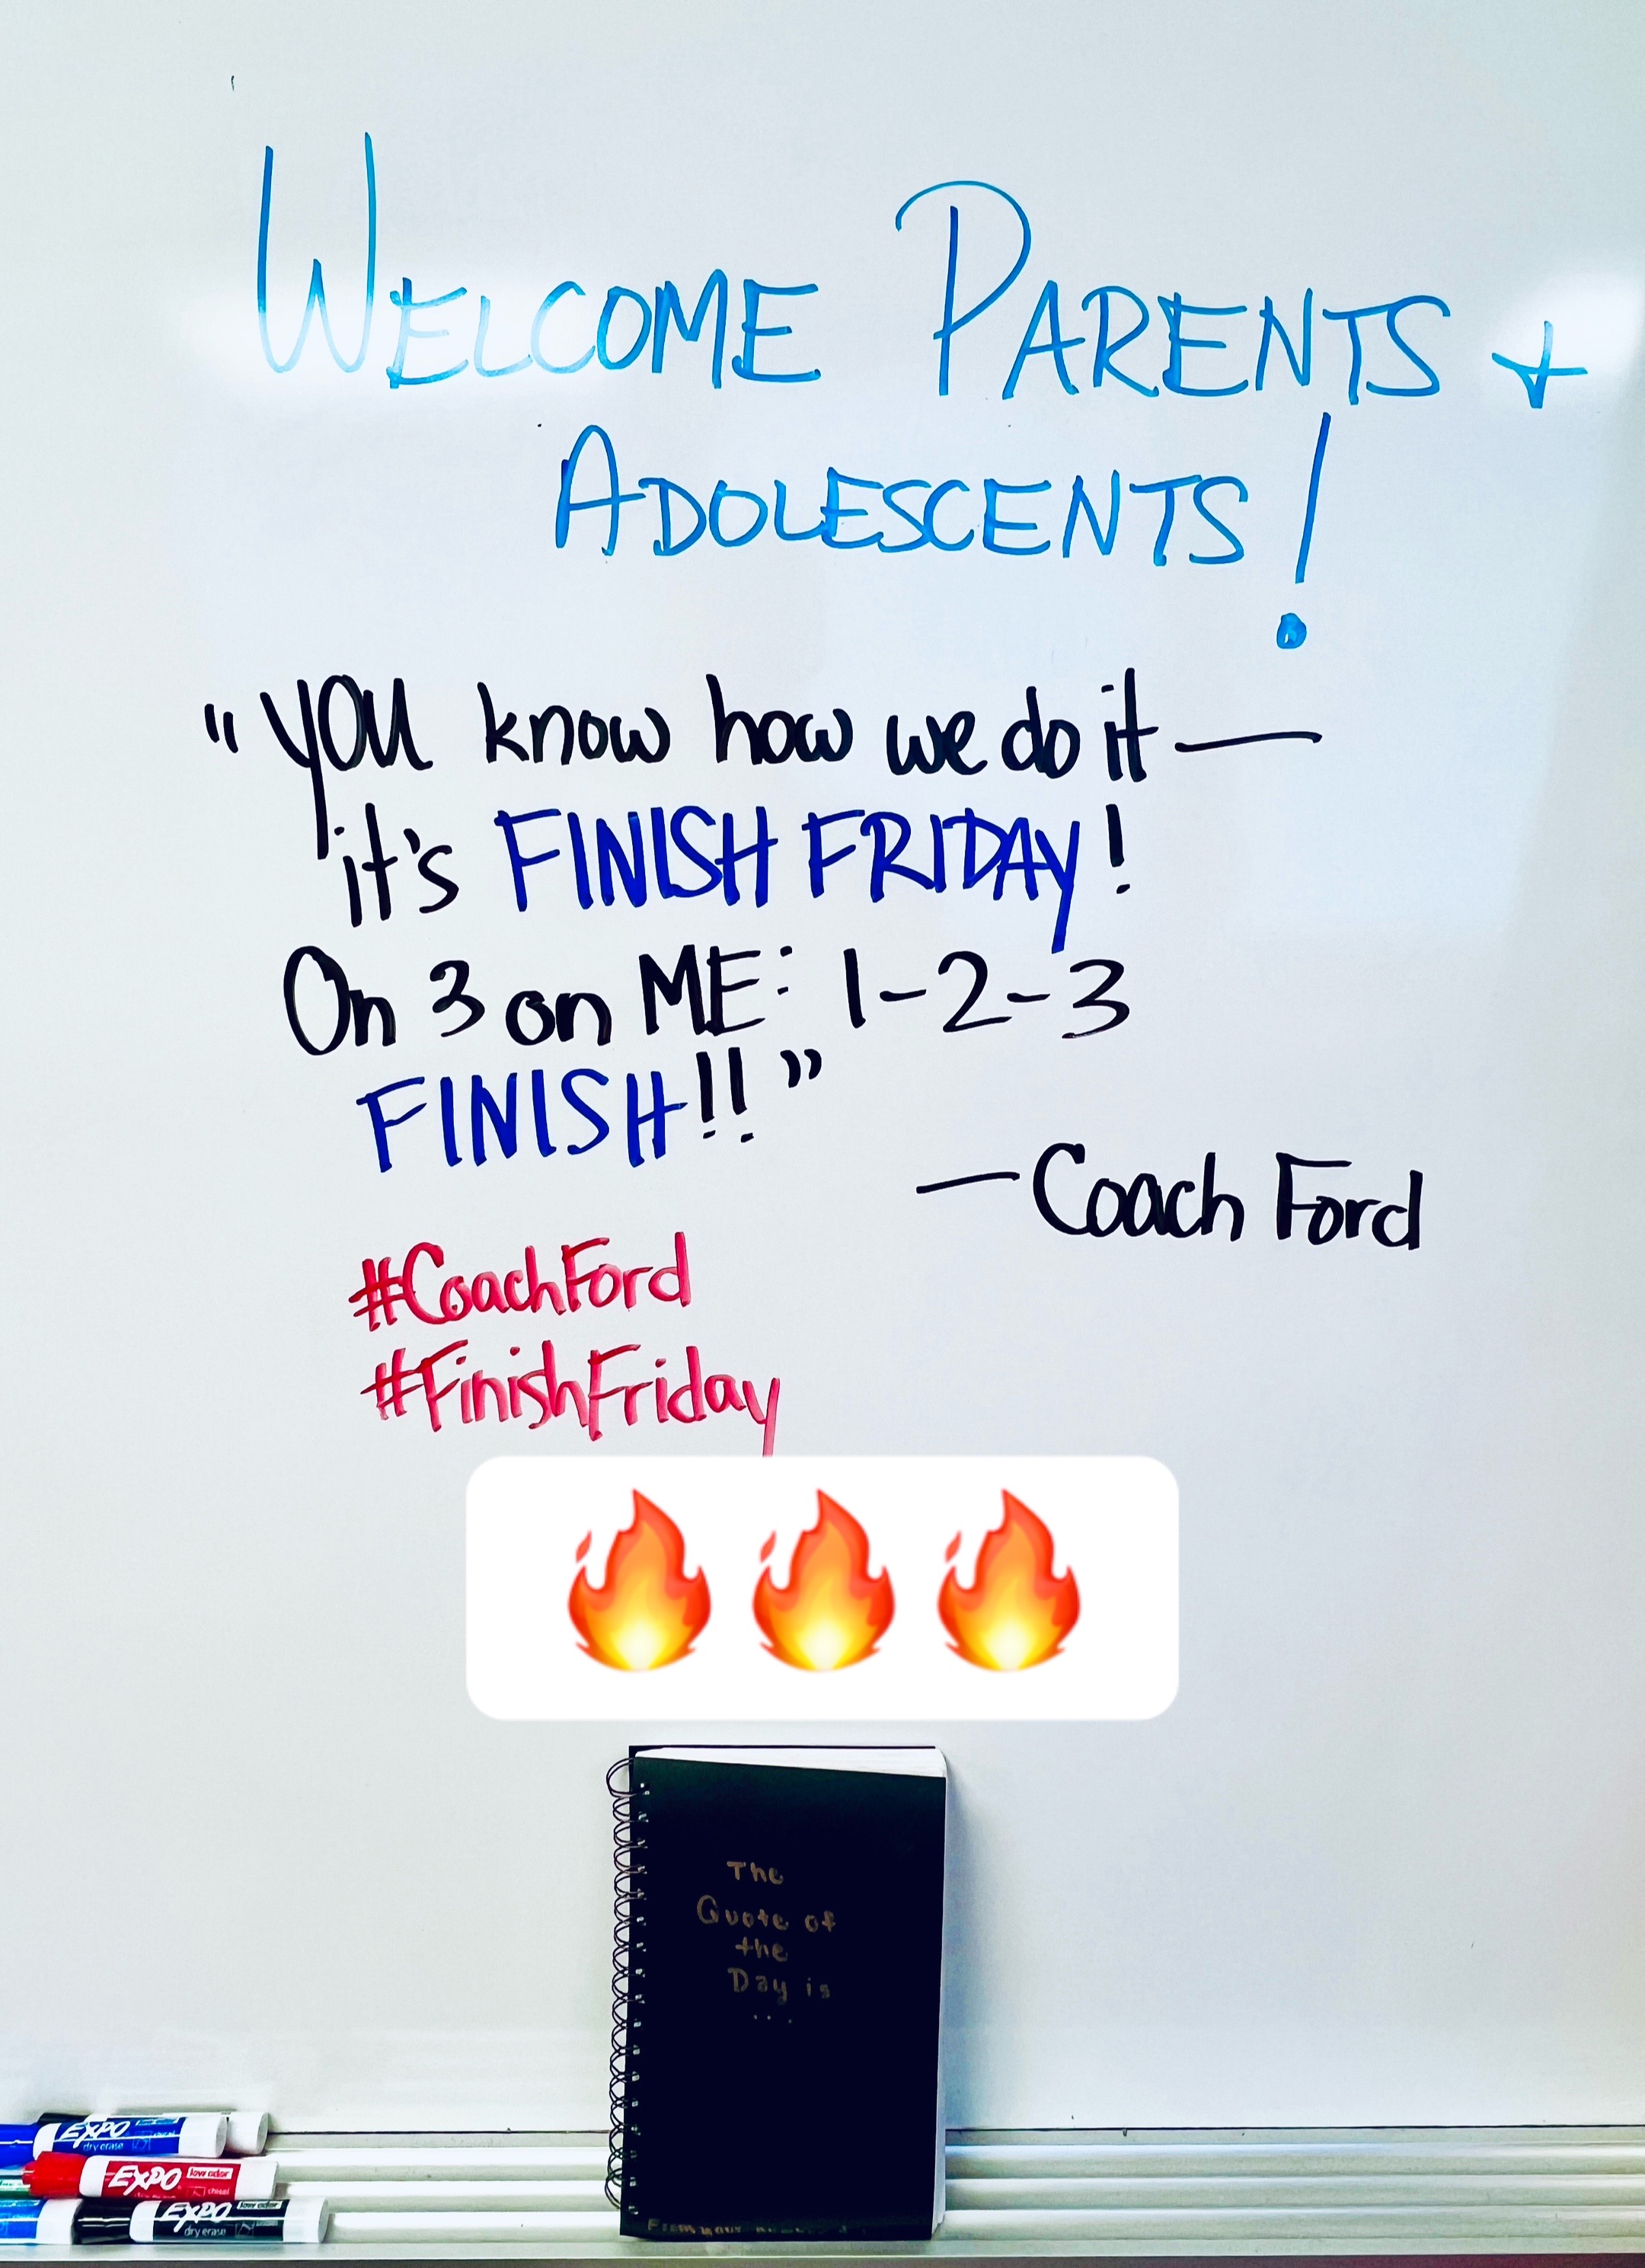 WELCOME PARENTS +
ADOLESCENTS!
"you know how we do it—
it's FINISH FRIDAY!
On 3 on ME: 1-2-3
FINISH!!"
—Coach Ford
#CoachFord
#FinishFriday
🔥🔥🔥
The
Quote of
the
Day is
...
From your
EXPO
dry erase
EXPO
low odor
chisel
EXPO
low odor
dry erase